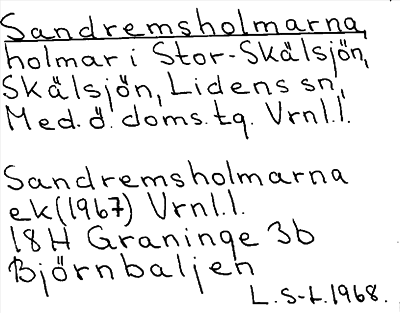 Sandremsholmarna,
holmar i Stor-Skälsjön,
Skälsjön, Lidens sn,
Med. ö. doms. tg. Vrnl.l.
Sandremsholmarna
ek (1967) Vrnl.l.
18H Graninge 3b
Björnbaljen
L. S-L. 1968.